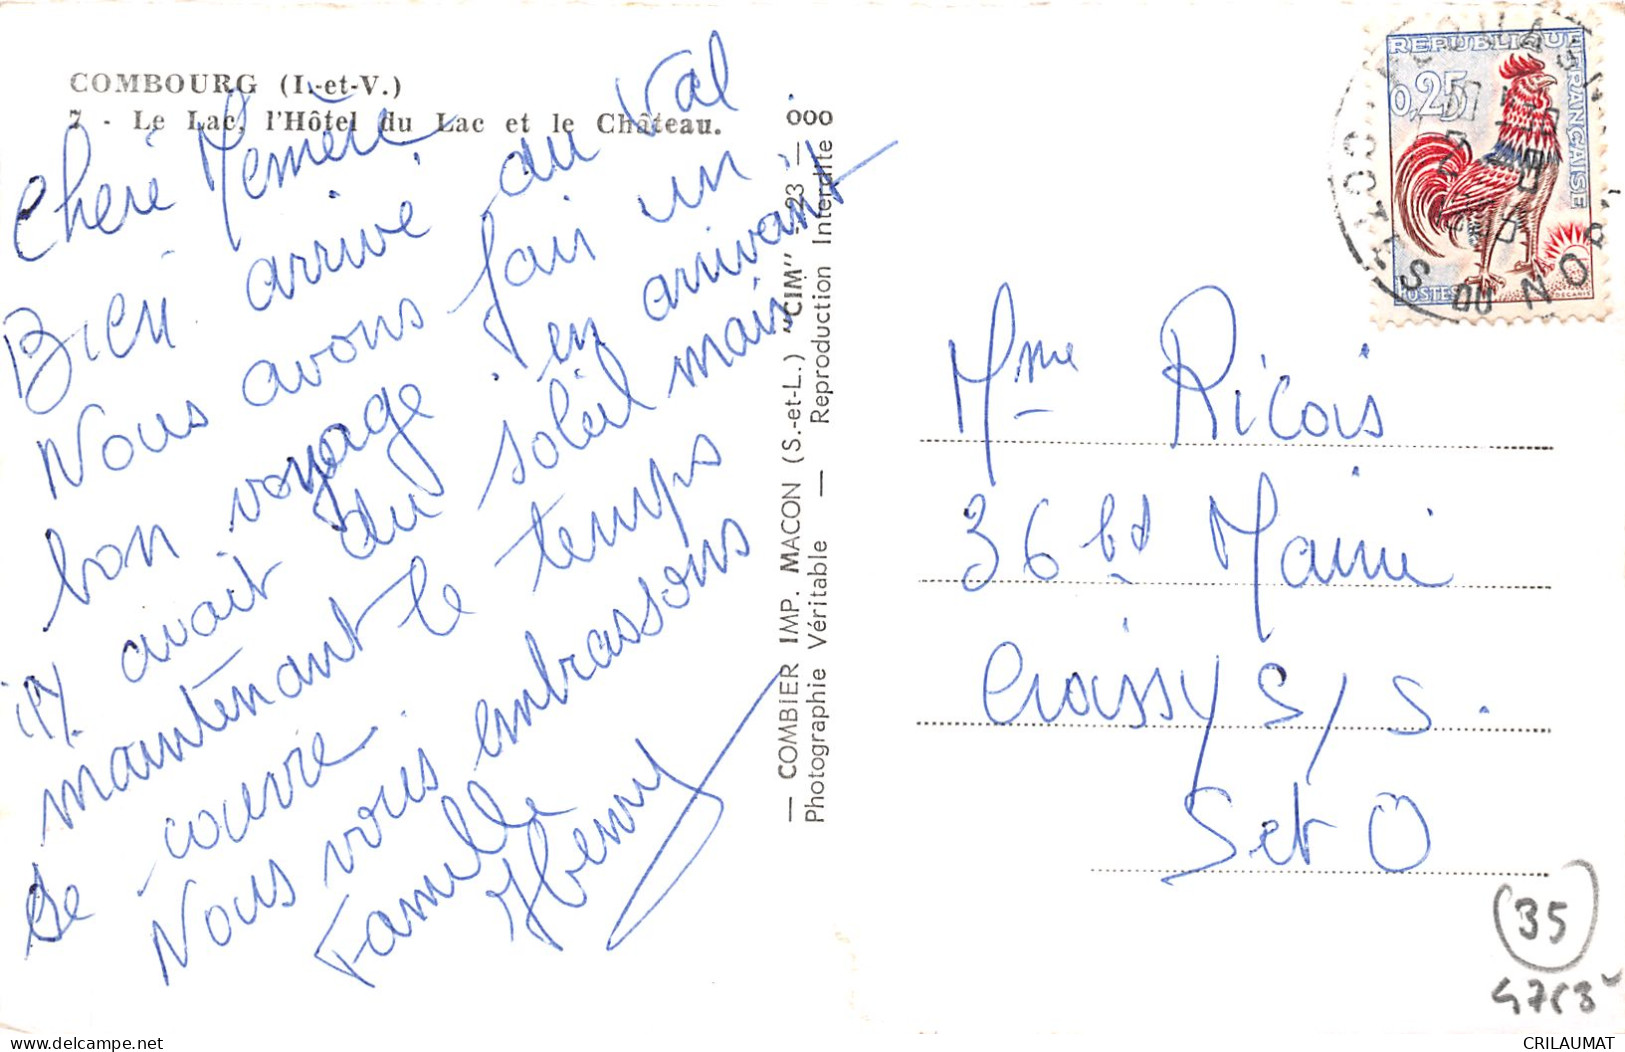 COMBOURG (I.-et-V.)
7 - Le Lac, l'Hôtel du Lac et le Château.
Cheré Mémère
Bien arrivé du Val
Nous avons fair un
bon voyage, en arrivant
il y avait du soleil mais
maintenant le temps
se couvre.
Nous vous embrassons
Famille
Hemy
— COMBIER IMP. MACON (S.-et-L.) "CIM" - 23 — 000
Photographie Véritable — Reproduction Interdite
REPUBLIQUE FRANÇAISE
0,25
POSTES
DECARIS
S DU NOR
Mme Ricois
36 bd Mairie
Croissy S/S.
Set O
35
CRILAUMAT